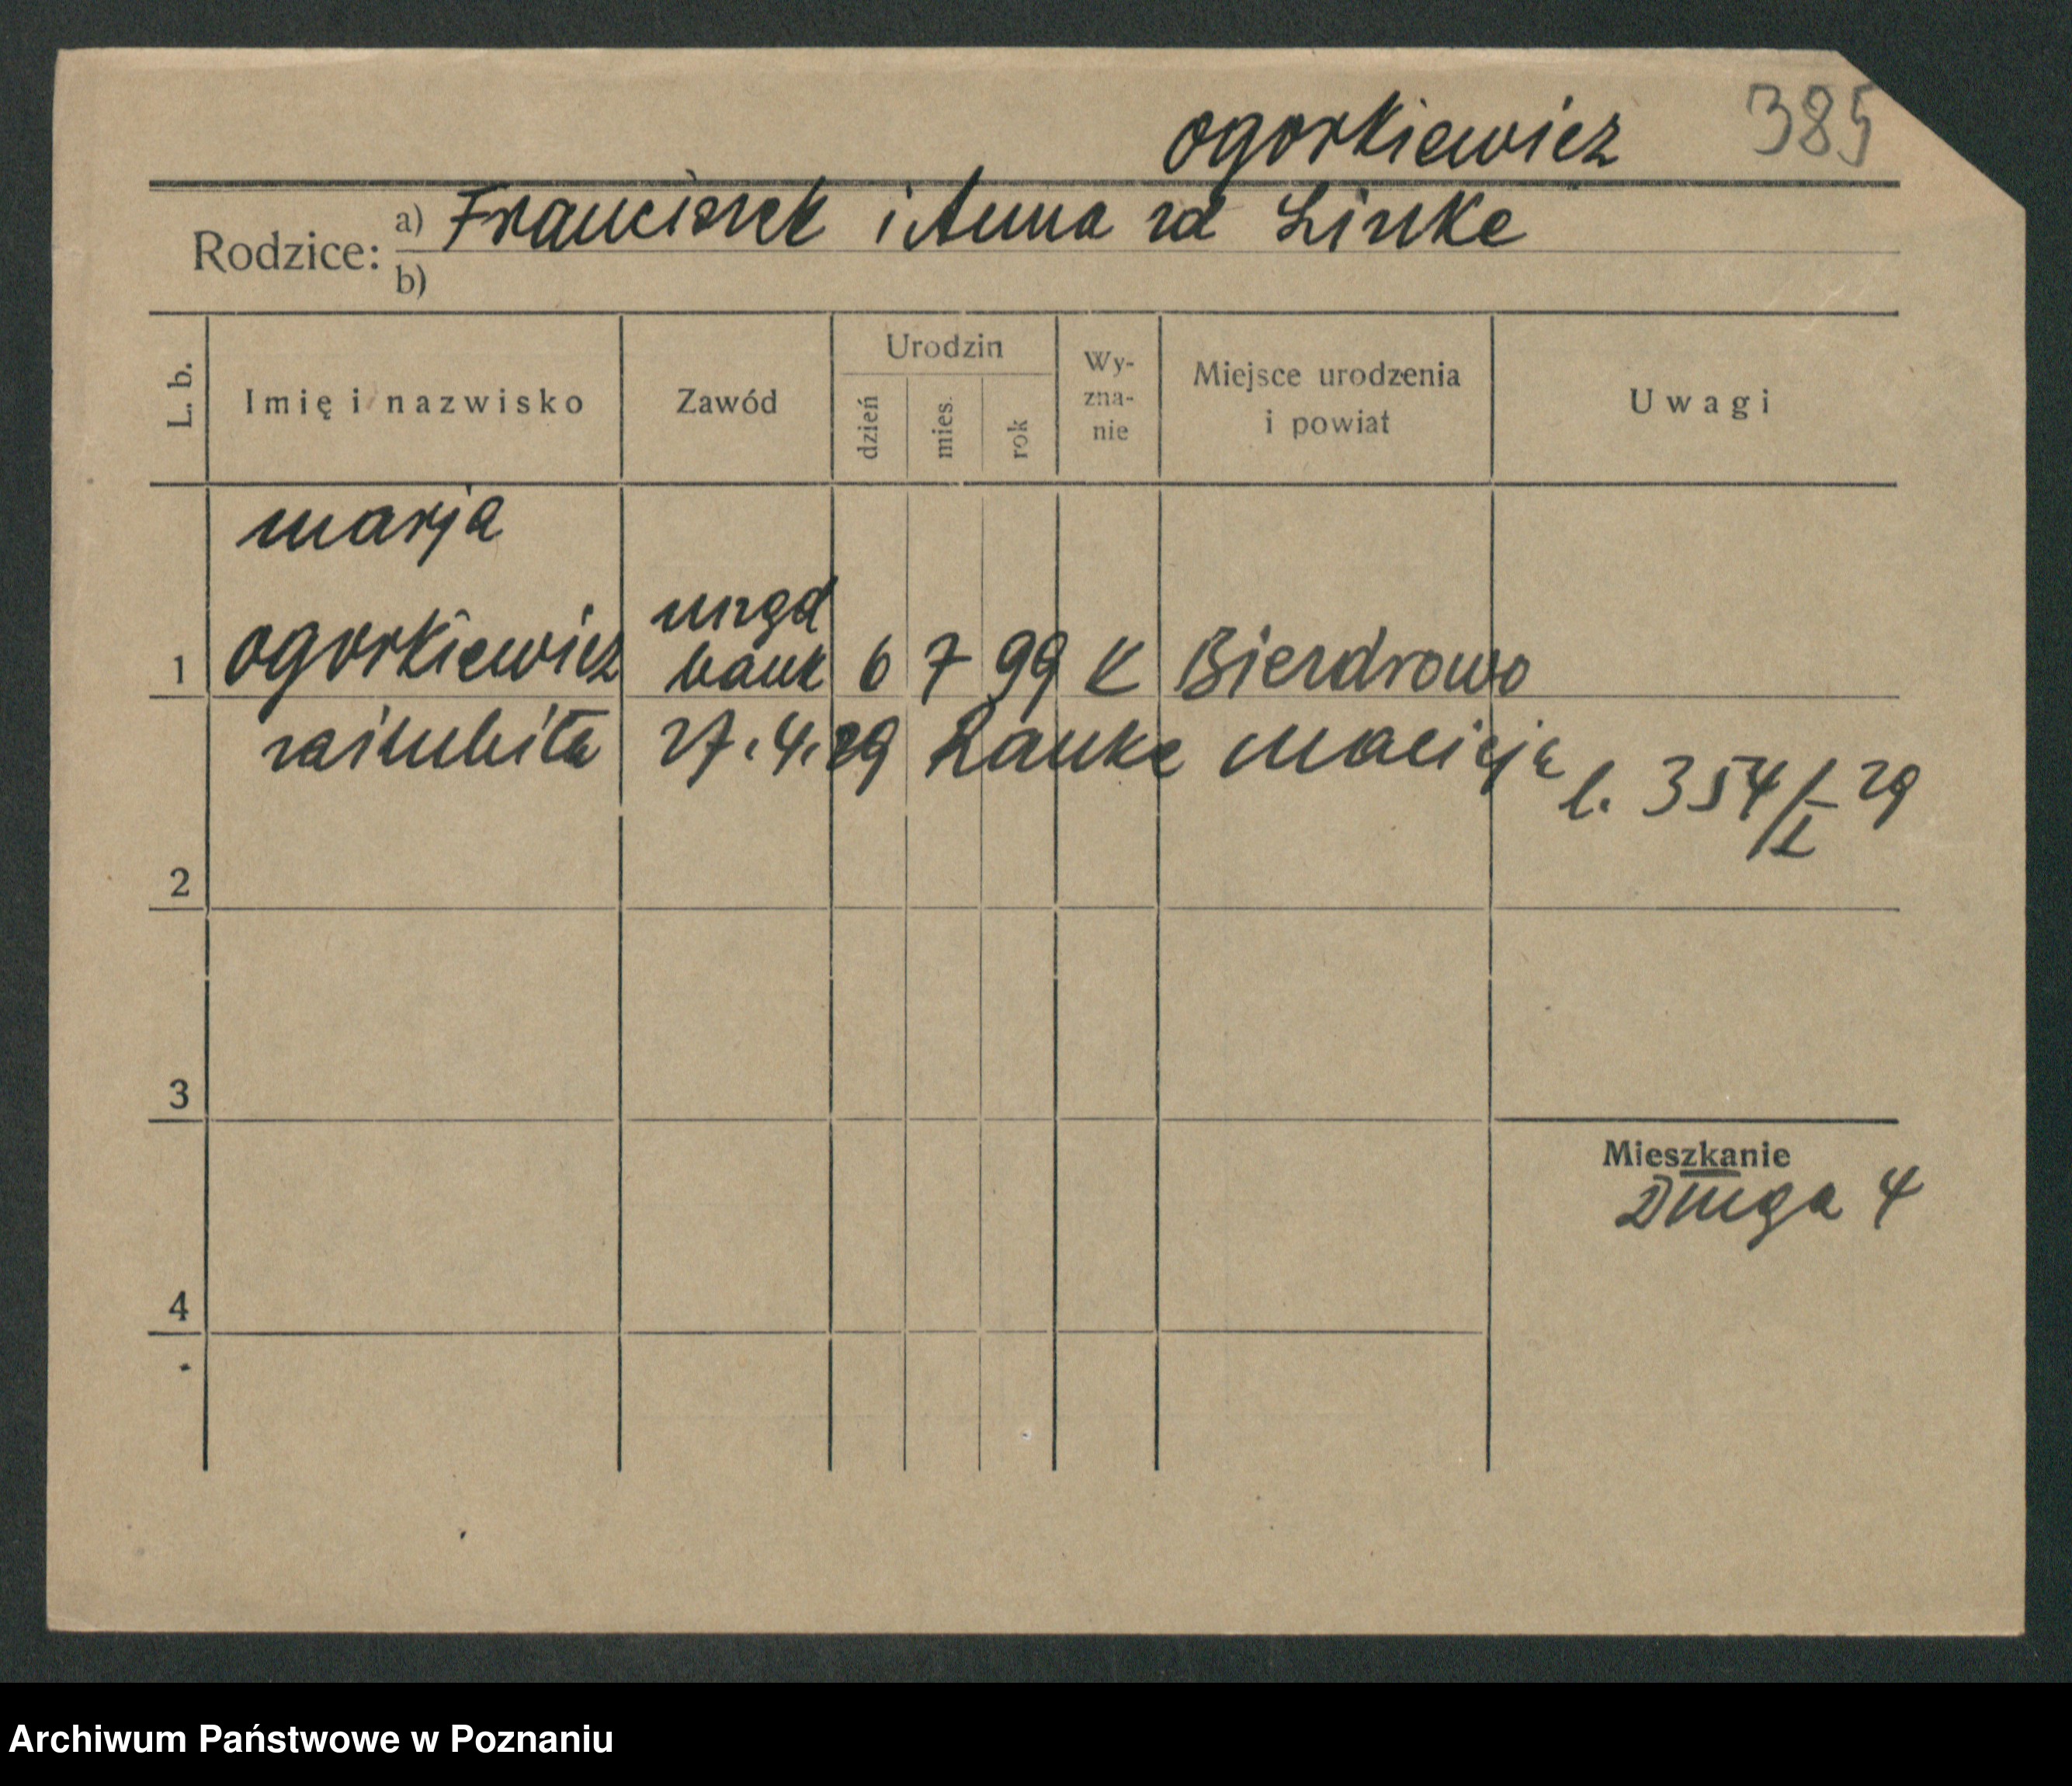 385
Ogorkiewicz
Rodzice: a) Franciszek i Anna zd Linke
b)
L. b. Imię i nazwisko Zawód Urodzin dzień mies. rok Wy-zna-nie Miejsce urodzenia i powiat Uwagi
Marja
urzęd
1 Ogorkiewicz bank 6 7 99 K Bierdrowo
zaślubiła 27.4.29 Macieja
l. 354/I 29
2
3
Mieszkanie
Długa 4
4
Archiwum Państwowe w Poznaniu